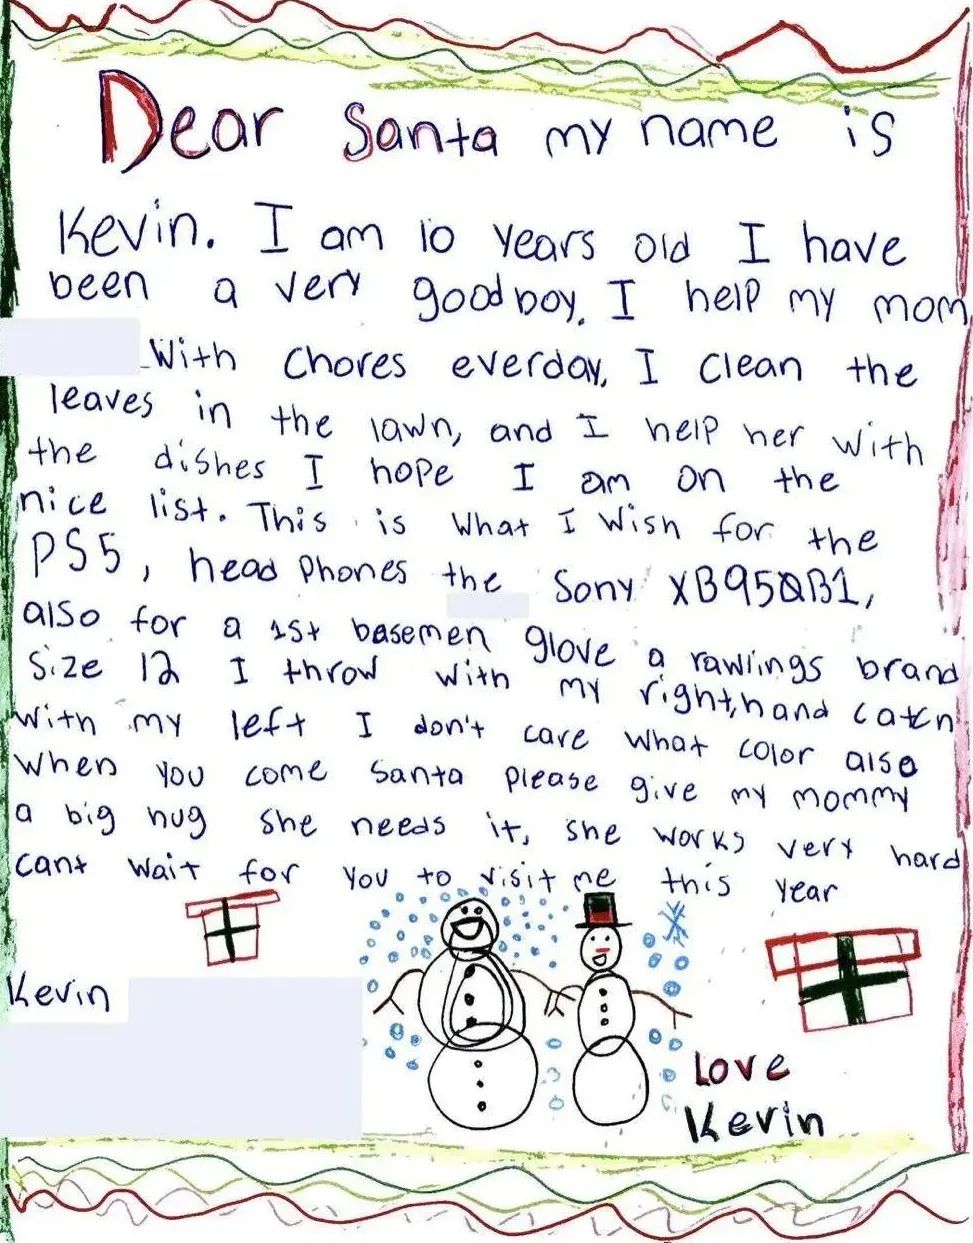 Dear Santa my name is
Kevin. I am 10 years old I have
been a very good boy. I help my mom
With chores everday, I clean the
leaves in the lawn, and I help her with
the dishes I hope I am on the
nice list. This is what I wish for the
PS5, head phones the Sony XB950B1,
also for a 1st basemen glove a rawlings brand
Size 12 I throw with my right hand catch
with my left I don't care what color also
when you come santa please give my mommy
a big hug she needs it, she works very hard
cant wait for you to visit me this year
Kevin
Love
Kevin